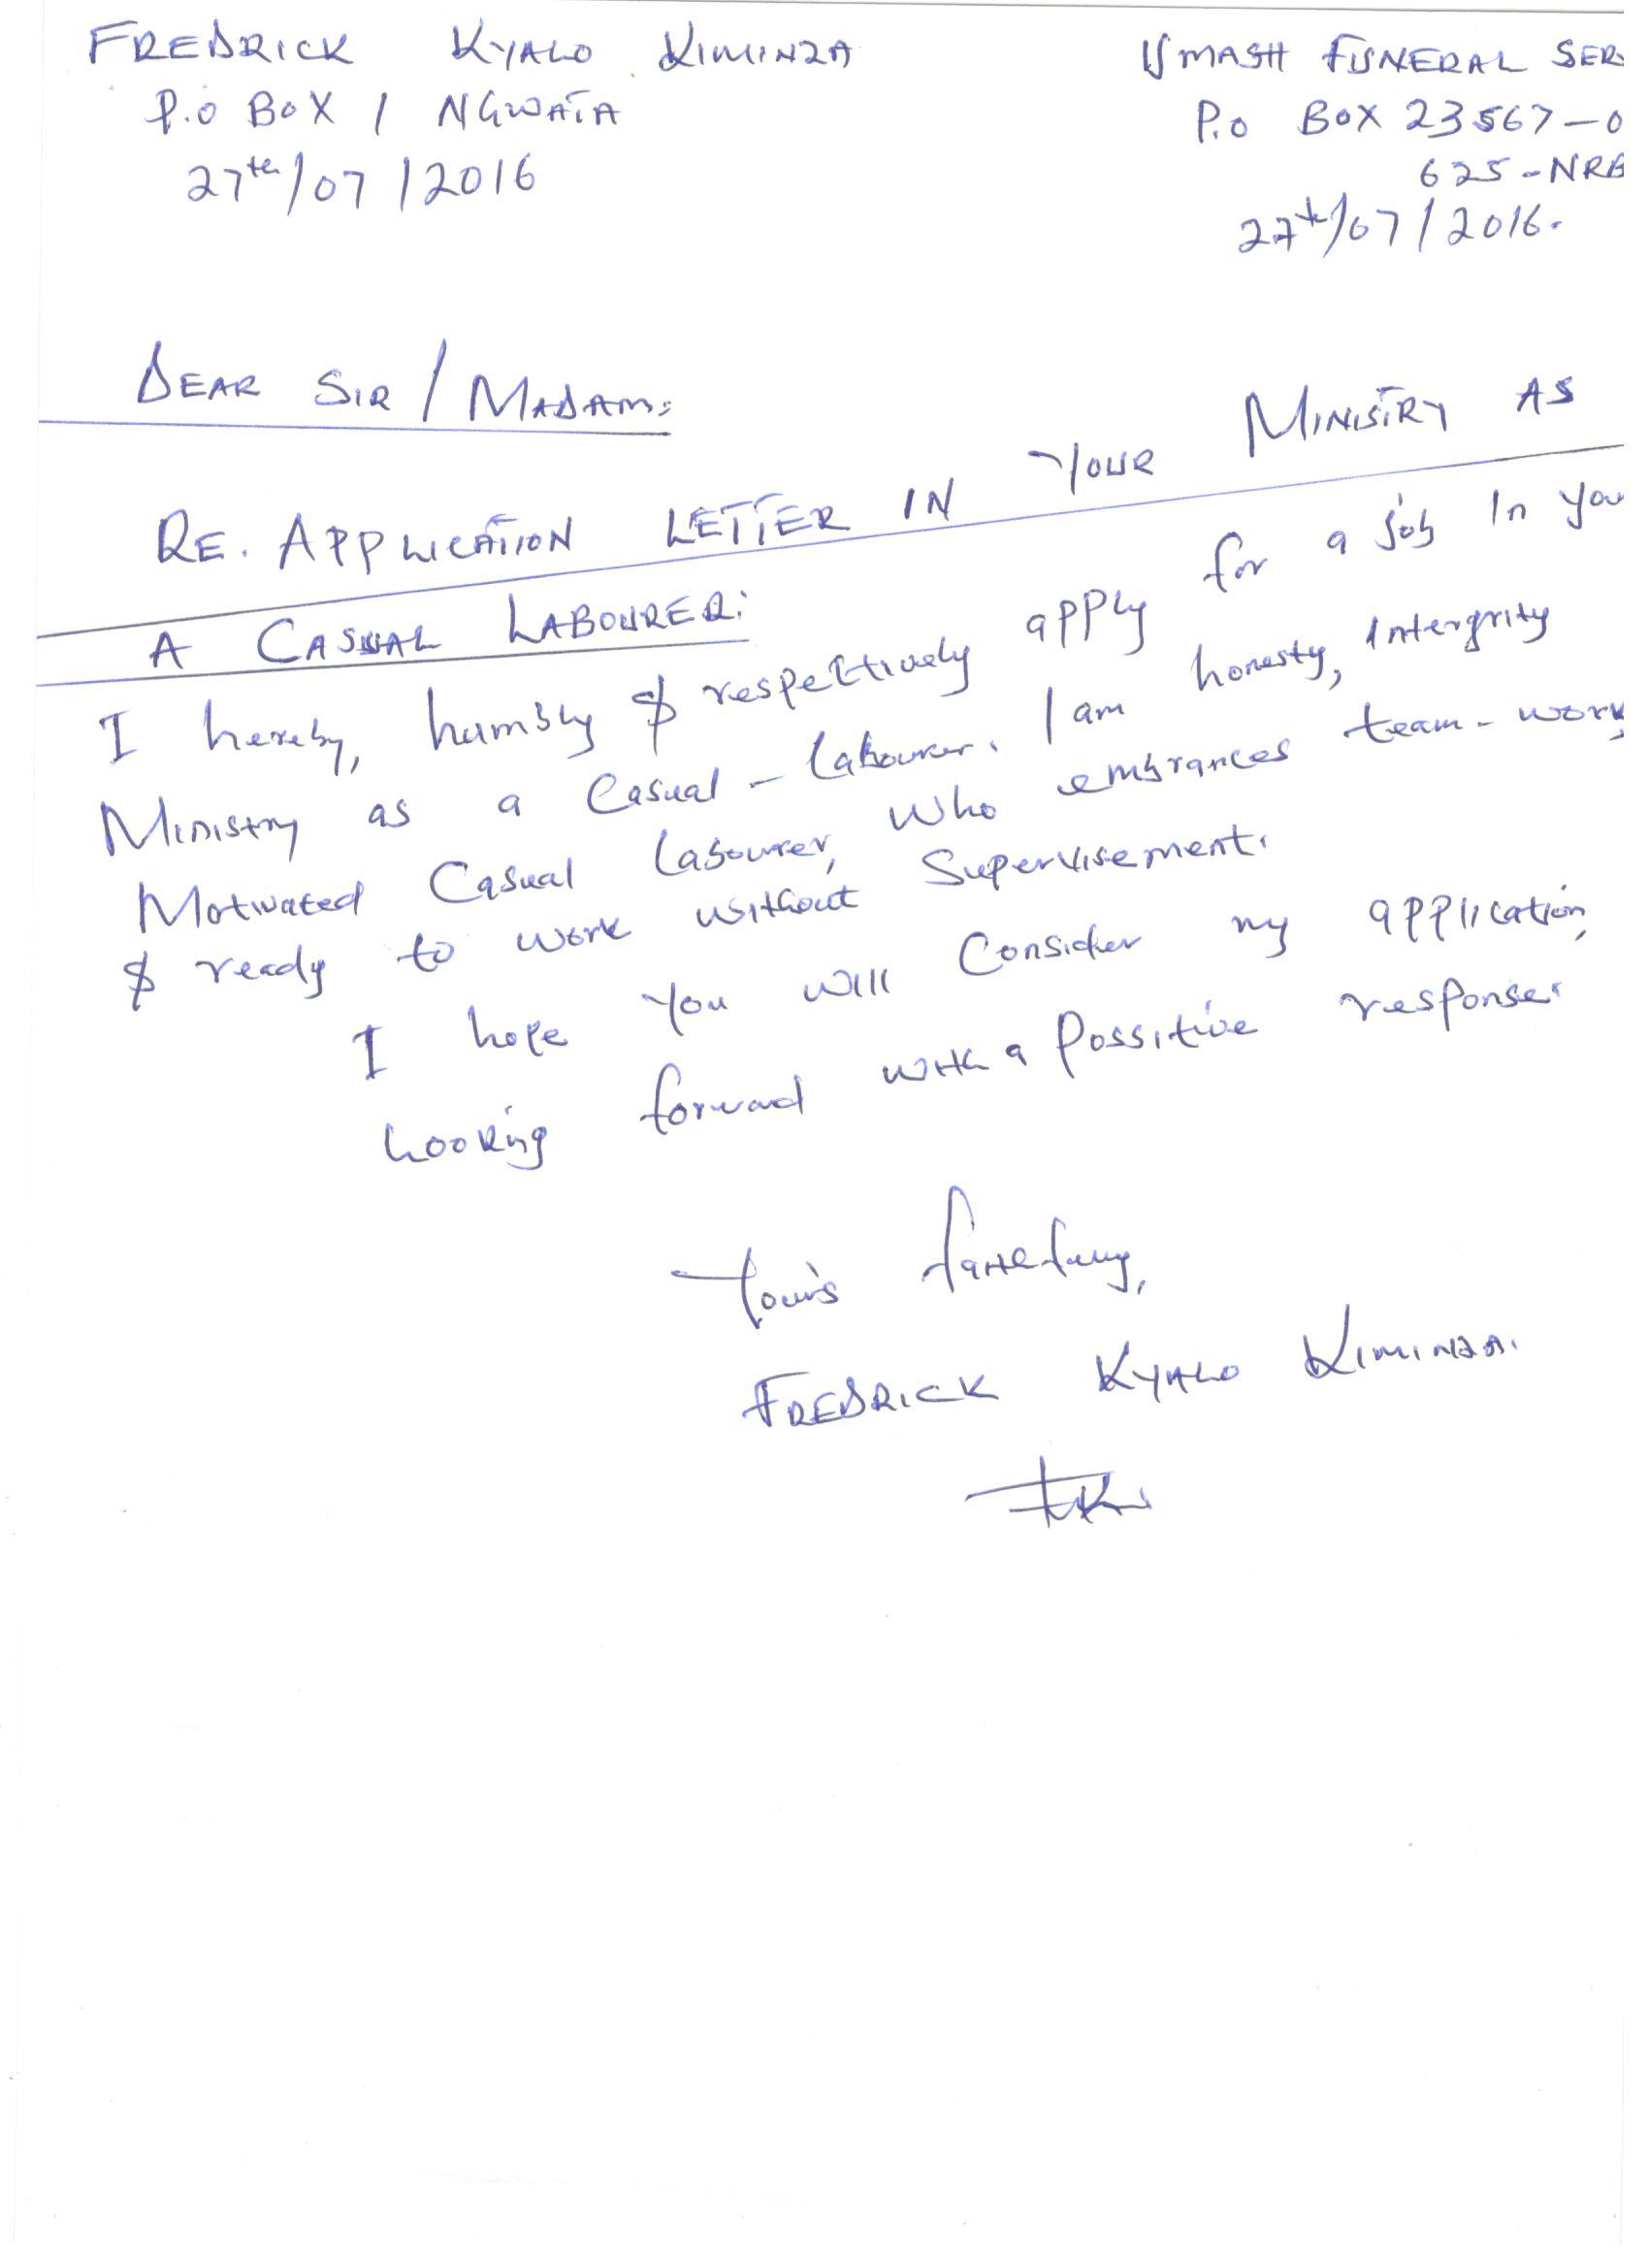 FREDRICK KYALO KIMINZA
P.O BOX 1 NGWATA
27th/07/2016
UMASH FUNERAL SER
P.O BOX 23567-0
625-NRB
27th/07/2016.
DEAR SIR/MADAM:
RE. APPLICATION LETTER IN YOUR MINISTRY AS
A CASUAL LABOURER:
I hereby, humbly & respectively apply for a job In you
Ministry as a Casual - labourer. I am honesty, Intergrity
Motivated Casual labourer, who embrances team-work
& ready to work without Supervisement.
I hope you will Consider my application,
Looking forward with a Possitive response.
Your's
FREDRICK KYALO KIMINZA.